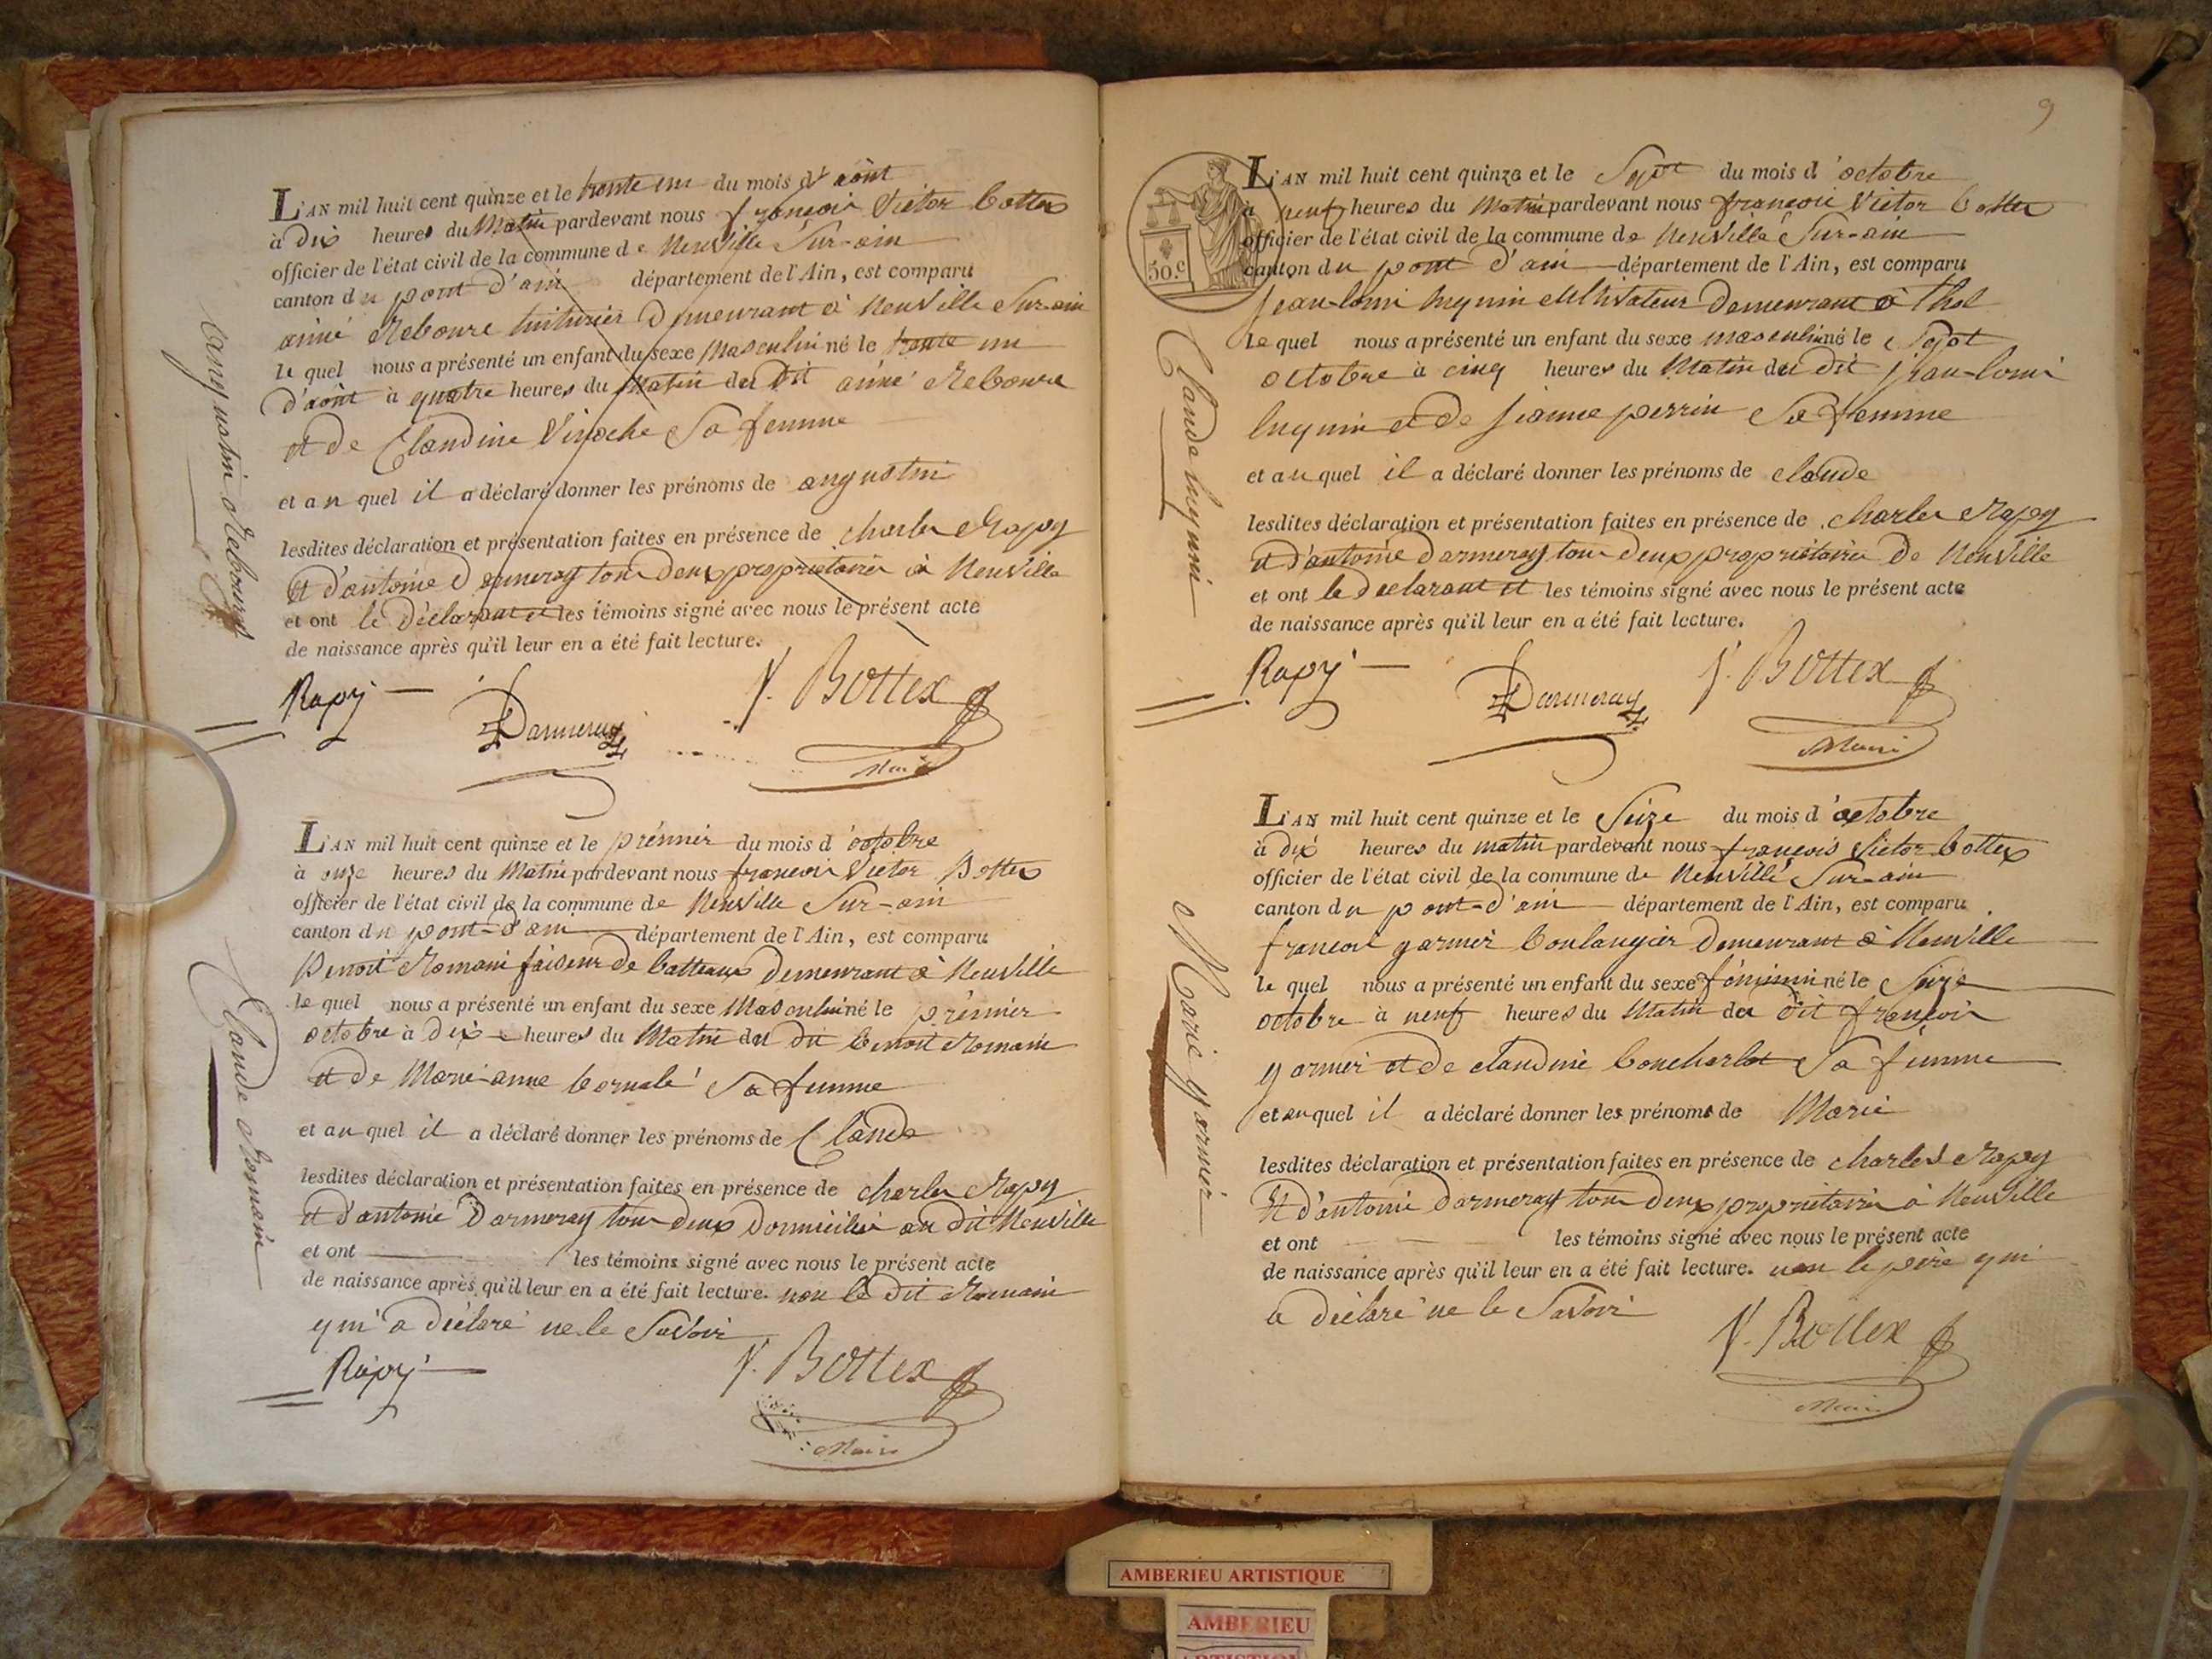 L'AN mil huit cent quinze et le trente un du mois d'août
à dix heures du Matin pardevant nous françois Victor bottex
officier de l'état civil de la commune de Neuville Sur-ain
canton du pont d'ain département de l'Ain, est comparu
aimé Rebours demeurant à Neuville Sur-ain
le quel nous a présenté un enfant du sexe Masculin né le trente un
d'août à quatre heures du Matin du dit aimé Rebours
et de Claudine Sa femme
et au quel il a déclaré donner les prénoms de augustin
lesdites déclaration et présentation faites en présence de charles Rapy
et d'antoine darmeray tous deux propriétaires à Neuville
et ont le déclarant et les témoins signé avec nous le présent acte
de naissance après qu'il leur en a été fait lecture.
Rapy Darmeray V. Bottex
Maire
augustin Rebours
L'AN mil huit cent quinze et le prémier du mois d'octobre
à onze heures du Matin pardevant nous françois Victor Bottex
officier de l'état civil de la commune de Neuville Sur-ain
canton du pont-d'ain département de l'Ain, est comparu
Benoit Romain faiseur de batteaux demeurant à Neuville
le quel nous a présenté un enfant du sexe Masculin né le prémier
octobre à dix heures du Matin du dit benoit Romain
et de Marie-anne Sa femme
et au quel il a déclaré donner les prénoms de Claude
lesdites déclaration et présentation faites en présence de charles Rapy
et d'antoine Darmeray tous deux domiciliés au dit Neuville
et ont les témoins signé avec nous le présent acte
de naissance après qu'il leur en a été fait lecture. non le dit Romain
qui a déclaré ne le Savoir
Rapy V. Bottex
Maire
Claude Romain
9
50.c
L'AN mil huit cent quinze et le Sept du mois d'octobre
à neuf heures du Matin pardevant nous françois Victor bottex
officier de l'état civil de la commune de Neuville Sur-ain
canton du pont d'ain département de l'Ain, est comparu
Jean-louis luquin cultivateur demeurant à thol
le quel nous a présenté un enfant du sexe masculin né le Sept
octobre à cinq heures du Matin du dit jean-louis
luquin et de jeanne perrin Sa femme
et au quel il a déclaré donner les prénoms de claude
lesdites déclaration et présentation faites en présence de charles Rapy
et d'antoine darmeray tous deux propriétaires de Neuville
et ont le déclarant et les témoins signé avec nous le présent acte
de naissance après qu'il leur en a été fait lecture.
Rapy Darmeray V. Bottex
Maire
Claude luquin
L'AN mil huit cent quinze et le Seize du mois d'octobre
à dix heures du matin pardevant nous françois Victor bottex
officier de l'état civil de la commune de Neuville Sur-ain
canton du pont-d'ain département de l'Ain, est comparu
françois garnier boulangier demeurant à Neuville
le quel nous a présenté un enfant du sexe féminin né le Seize
octobre à neuf heures du Matin du dit françois
garnier et de claudine boucharlat Sa femme
et au quel il a déclaré donner les prénoms de Marie
lesdites déclaration et présentation faites en présence de charles Rapy
et d'antoine darmeray tous deux propriétaires à Neuville
et ont les témoins signé avec nous le présent acte
de naissance après qu'il leur en a été fait lecture. non le père qui
a déclaré ne le Savoir
V. Bottex
Maire
Marie garnier
AMBERIEU ARTISTIQUE
AMBERIEU
ARTISTIQUE